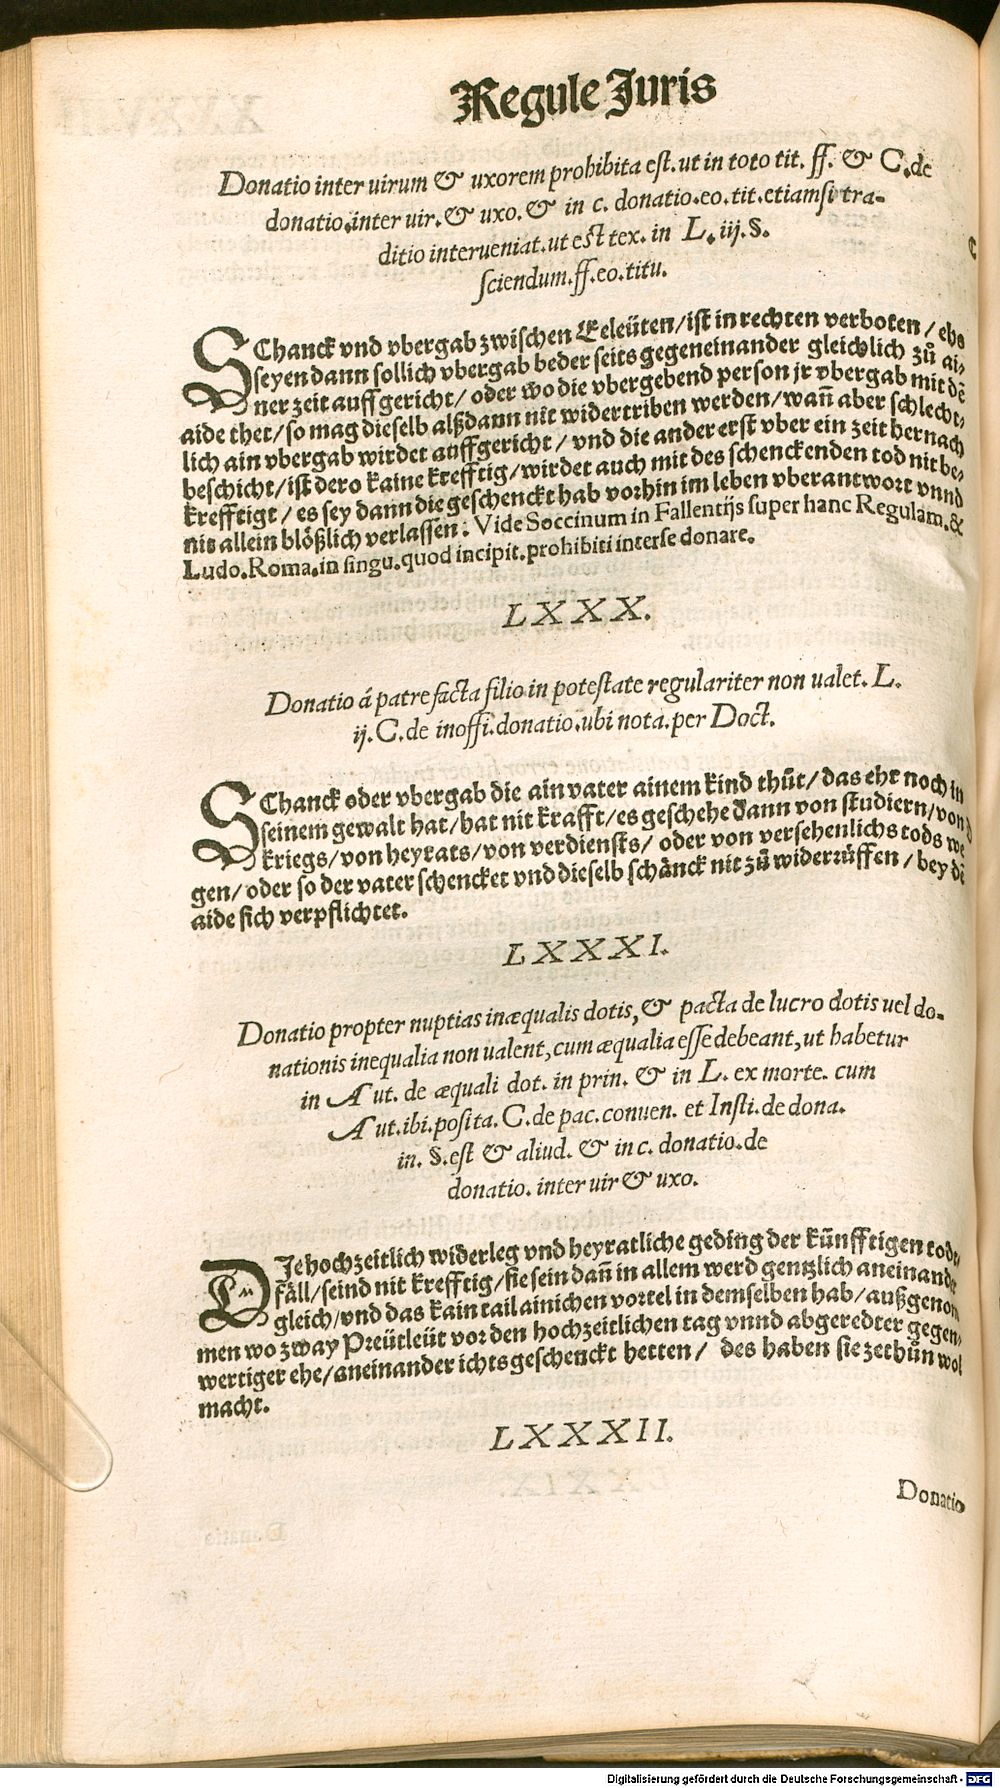 Regule Juris
Donatio inter uirum & uxorem prohibita est. ut in toto tit. ff. & C. de
donatio. inter uir. & uxo. & in c. donatio. eo. tit. etiamsi tra-
ditio interueniat. ut est tex. in L. iij. §.
sciendum. ff. eo. titu.
SChanck vnd vbergab zwischen Eeleüten/ist in rechten verboten / ehs
seyen dann sollich vbergab beder seits gegeneinander gleichlich zů ai-
ner zeit auffgericht/ oder wo die vbergebend person jr vbergab mit dē
aide thet/so mag dieselb alßdann nit widertriben werden/wañ aber schlecht-
lich ain vbergab wirdet auffgericht / vnd die ander erst vber ein zeit hernach
beschicht/ist dero kaine krefftig/wirdet auch mit des schenckenden tod nit be-
krefftigt / es sey dann die geschenckt hab vorhin im leben vberantwort vnnd
nit allein blößlich verlassen. Vide Soccinum in Fallentijs super hanc Regulam. &
Ludo. Roma. in singu. quod incipit. prohibiti interse donare.
LXXX.
Donatio á patre facta filio in potestate regulariter non ualet. L.
ij. C. de inoffi. donatio. ubi nota. per Doct.
SChanck oder vbergab die ain vater ainem kind thůt/das ehr noch in
seinem gewalt hat/hat nit krafft/es geschehe dann von studiern/von d
kriegs/von heyrats/von verdiensts/ oder von versehenlichs tods we
gen/oder so der vater schencket vnd dieselb schänck nit zů widerrůffen / bey dē
aide sich verpflichtet.
LXXXI.
Donatio propter nuptias inæqualis dotis, & pacta de lucro dotis uel do-
nationis inequalia non ualent, cum æqualia esse debeant, ut habetur
in Aut. de æquali dot. in prin. & in L. ex morte. cum
Aut. ibi. posita. C. de pac. conuen. et Insti. de dona.
in. §. est & aliud. & in c. donatio. de
donatio. inter uir & uxo.
DIe hochzeitlich widerleg vnd heyratliche geding der künfftigen tods
fäll/seind nit krefftig/sie sein dañ in allem werd gentzlich aneinander
gleich/vnd das kain tail ainichen vortel in demselben hab/außgenom
men wo zway Preütleüt vor den hochzeitlichen tag vnnd abgeredter gegen-
wertiger ehe/aneinander ichts geschenckt hetten/ des haben sie zethůn wol
macht.
LXXXII.
Donatio
Digitalisierung gefördert durch die Deutsche Forschungsgemeinschaft - DFG